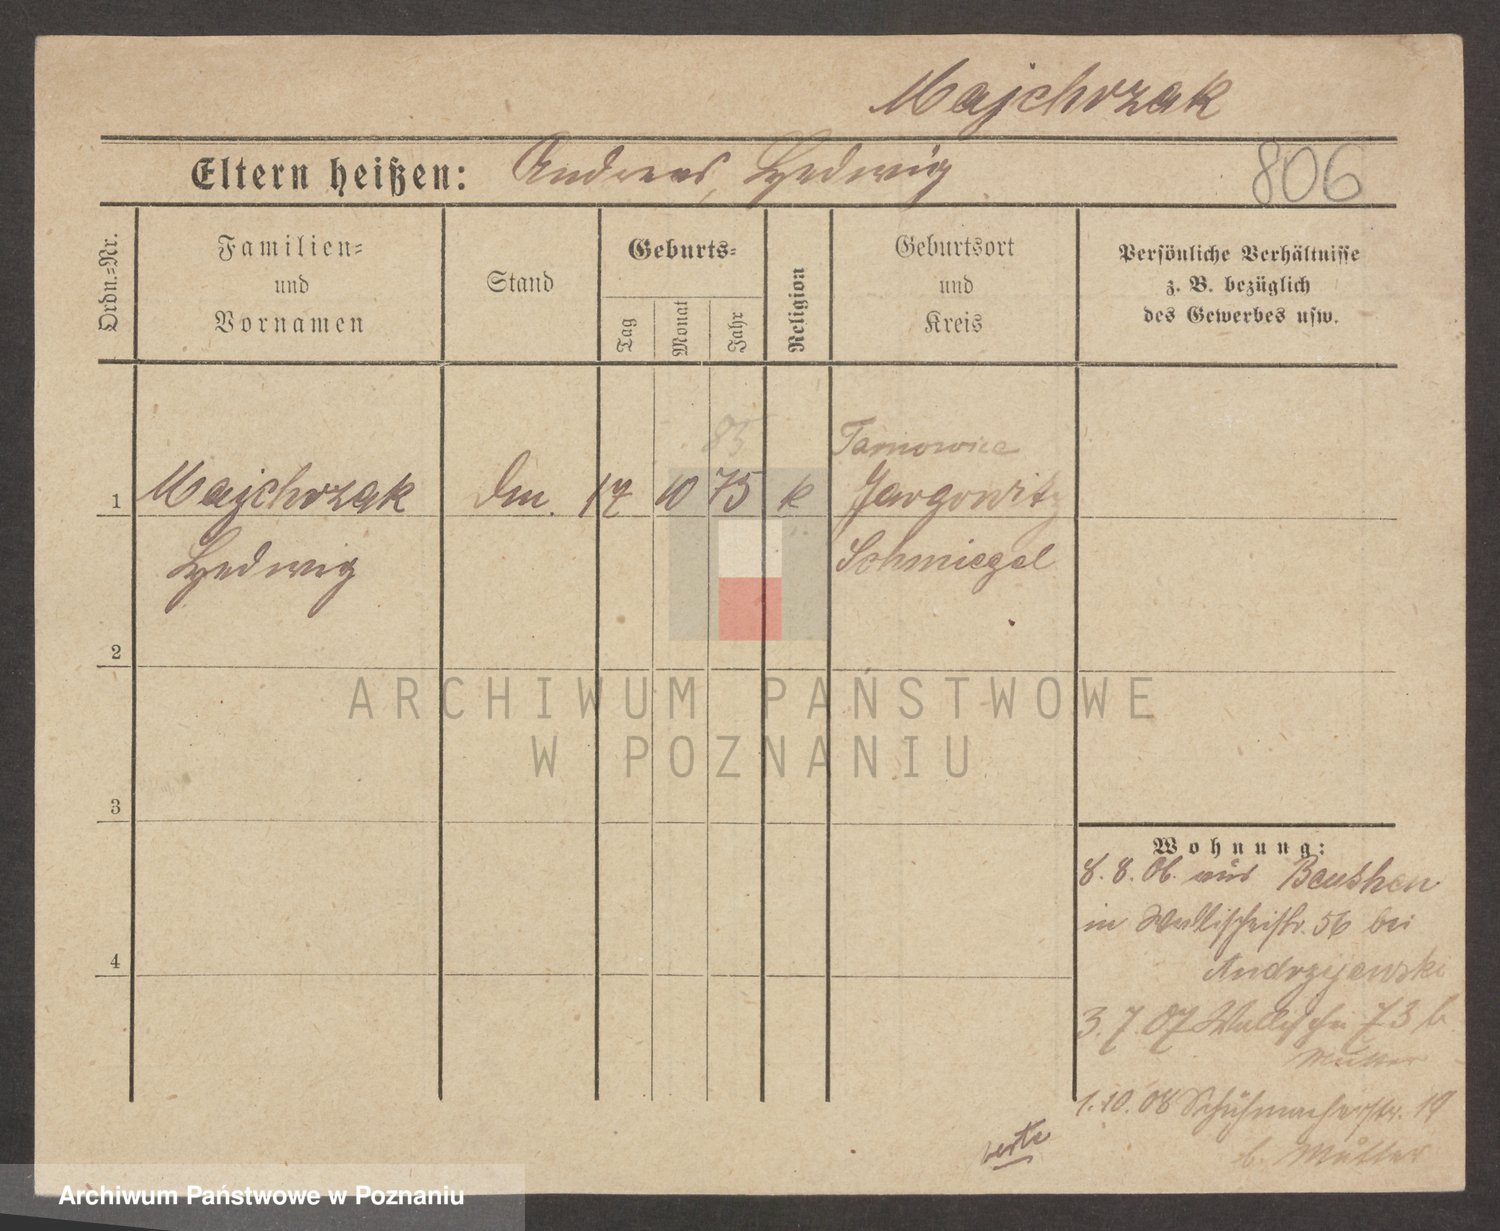 Majchrzak
Eltern heißen: Andreas, Hedwig
806
Ordn.-Nr.
Familien-
und
Vornamen
Stand
Geburts-
Tag
Monat
Jahr
Religion
Geburtsort
und
Kreis
Persönliche Verhältnisse
z. B. bezüglich
des Gewerbes usw.
85
Tarnowice
1 Majchrzak 17 10 75 k
Hedwig
Schmiegel
2
3
4
Wohnung:
8.8.06. aus Beuthen
in Wallischeistr. 56 bei
Andrzejewski
3.7.07 Wallischei 73 b
Mutter
1.10.08 Schuhmacherstr. 19
b. Mutter
ARCHIWUM PAŃSTWOWE
W POZNANIU
Archiwum Państwowe w Poznaniu